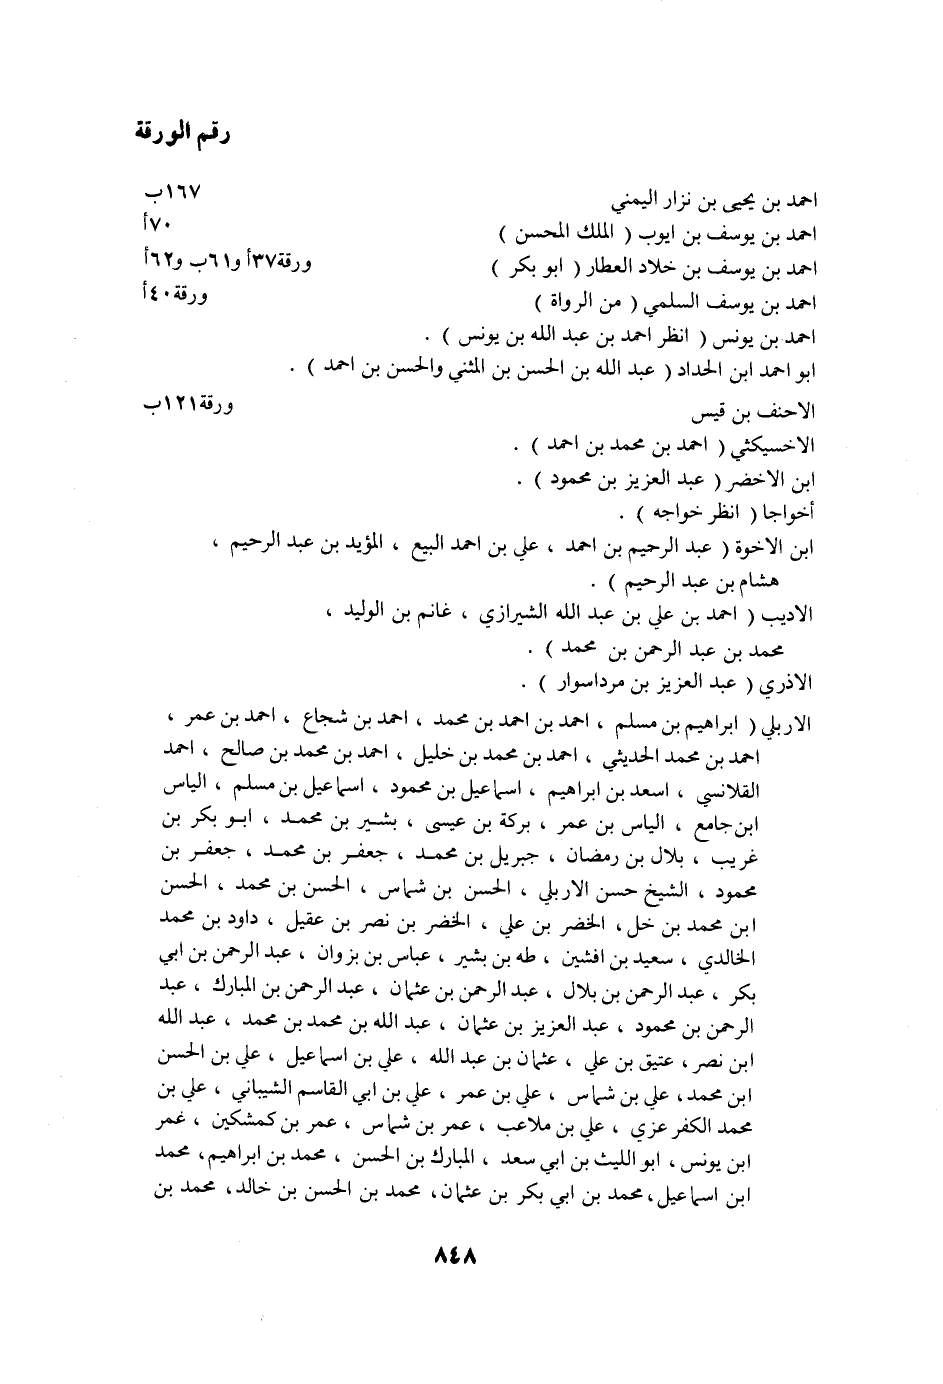 رقم الورقة
احمد بن يحيى بن نزار اليمني ١٦٧ب
احمد بن يوسف بن ايوب ( الملك المحسن ) ٧٠أ
احمد بن يوسف بن خلاد العطار ( ابو بكر ) ورقة٣٧أ و٦١ب و٦٢أ
احمد بن يوسف السلمي ( من الرواة ) ورقة٤٠أ
احمد بن يونس ( انظر احمد بن عبد الله بن يونس ) .
ابو احمد ابن الحداد ( عبد الله بن الحسن بن المثني والحسن بن احمد ) .
الاحنف بن قيس ورقة١٢١ب
الاخسيكثي ( احمد بن محمد بن احمد ) .
ابن الاخضر ( عبد العزيز بن محمود ) .
أخواجا ( انظر خواجه ) .
ابن الاخوة ( عبد الرحيم بن احمد ، علي بن احمد البيع ، المؤيد بن عبد الرحيم ،
هشام بن عبد الرحيم ) .
الاديب ( احمد بن علي بن عبد الله الشيرازي ، غانم بن الوليد ،
محمد بن عبد الرحمن بن محمد ) .
الاذري ( عبد العزيز بن مرداسوار ) .
الاربلي ( ابراهيم بن مسلم ، احمد بن احمد بن محمد ، احمد بن شجاع ، احمد بن عمر ،
احمد بن محمد الحديثي ، احمد بن محمد بن خليل ، احمد بن محمد بن صالح ، احمد
القلانسي ، اسعد بن ابراهيم ، اسماعيل بن محمود ، اسماعيل بن مسلم ، الياس
ابن جامع ، الياس بن عمر ، بركة بن عيسى ، بشير بن محمد ، ابو بكر بن
غريب ، بلال بن رمضان ، جبريل بن محمد ، جعفر بن محمد ، جعفر بن
محمود ، الشيخ حسن الاربلي ، الحسن بن شماس ، الحسن بن محمد ، الحسن
ابن محمد بن خل ، الخضر بن علي ، الخضر بن نصر بن عقيل ، داود بن محمد
الخالدي ، سعيد بن افشين ، طه بن بشير ، عباس بن بزوان ، عبد الرحمن بن ابي
بكر ، عبد الرحمن بن بلال ، عبد الرحمن بن عثمان ، عبد الرحمن بن المبارك ، عبد
الرحمن بن محمود ، عبد العزيز بن عثمان ، عبد الله بن محمد بن محمد ، عبد الله
ابن نصر ، عتيق بن علي ، عثمان بن عبد الله ، علي بن اسماعيل ، علي بن الحسن
ابن محمد ، علي بن شماس ، علي بن عمر ، علي بن ابي القاسم الشيباني ، علي بن
محمد الكفر عزي ، علي بن ملاعب ، عمر بن شماس ، عمر بن كمشكين ، عمر
ابن يونس ، ابو الليث بن ابي سعد ، المبارك بن الحسن ، محمد بن ابراهيم ، محمد
ابن اسماعيل ، محمد بن ابي بكر بن عثمان ، محمد بن الحسن بن خالد ، محمد بن
٨٤٨